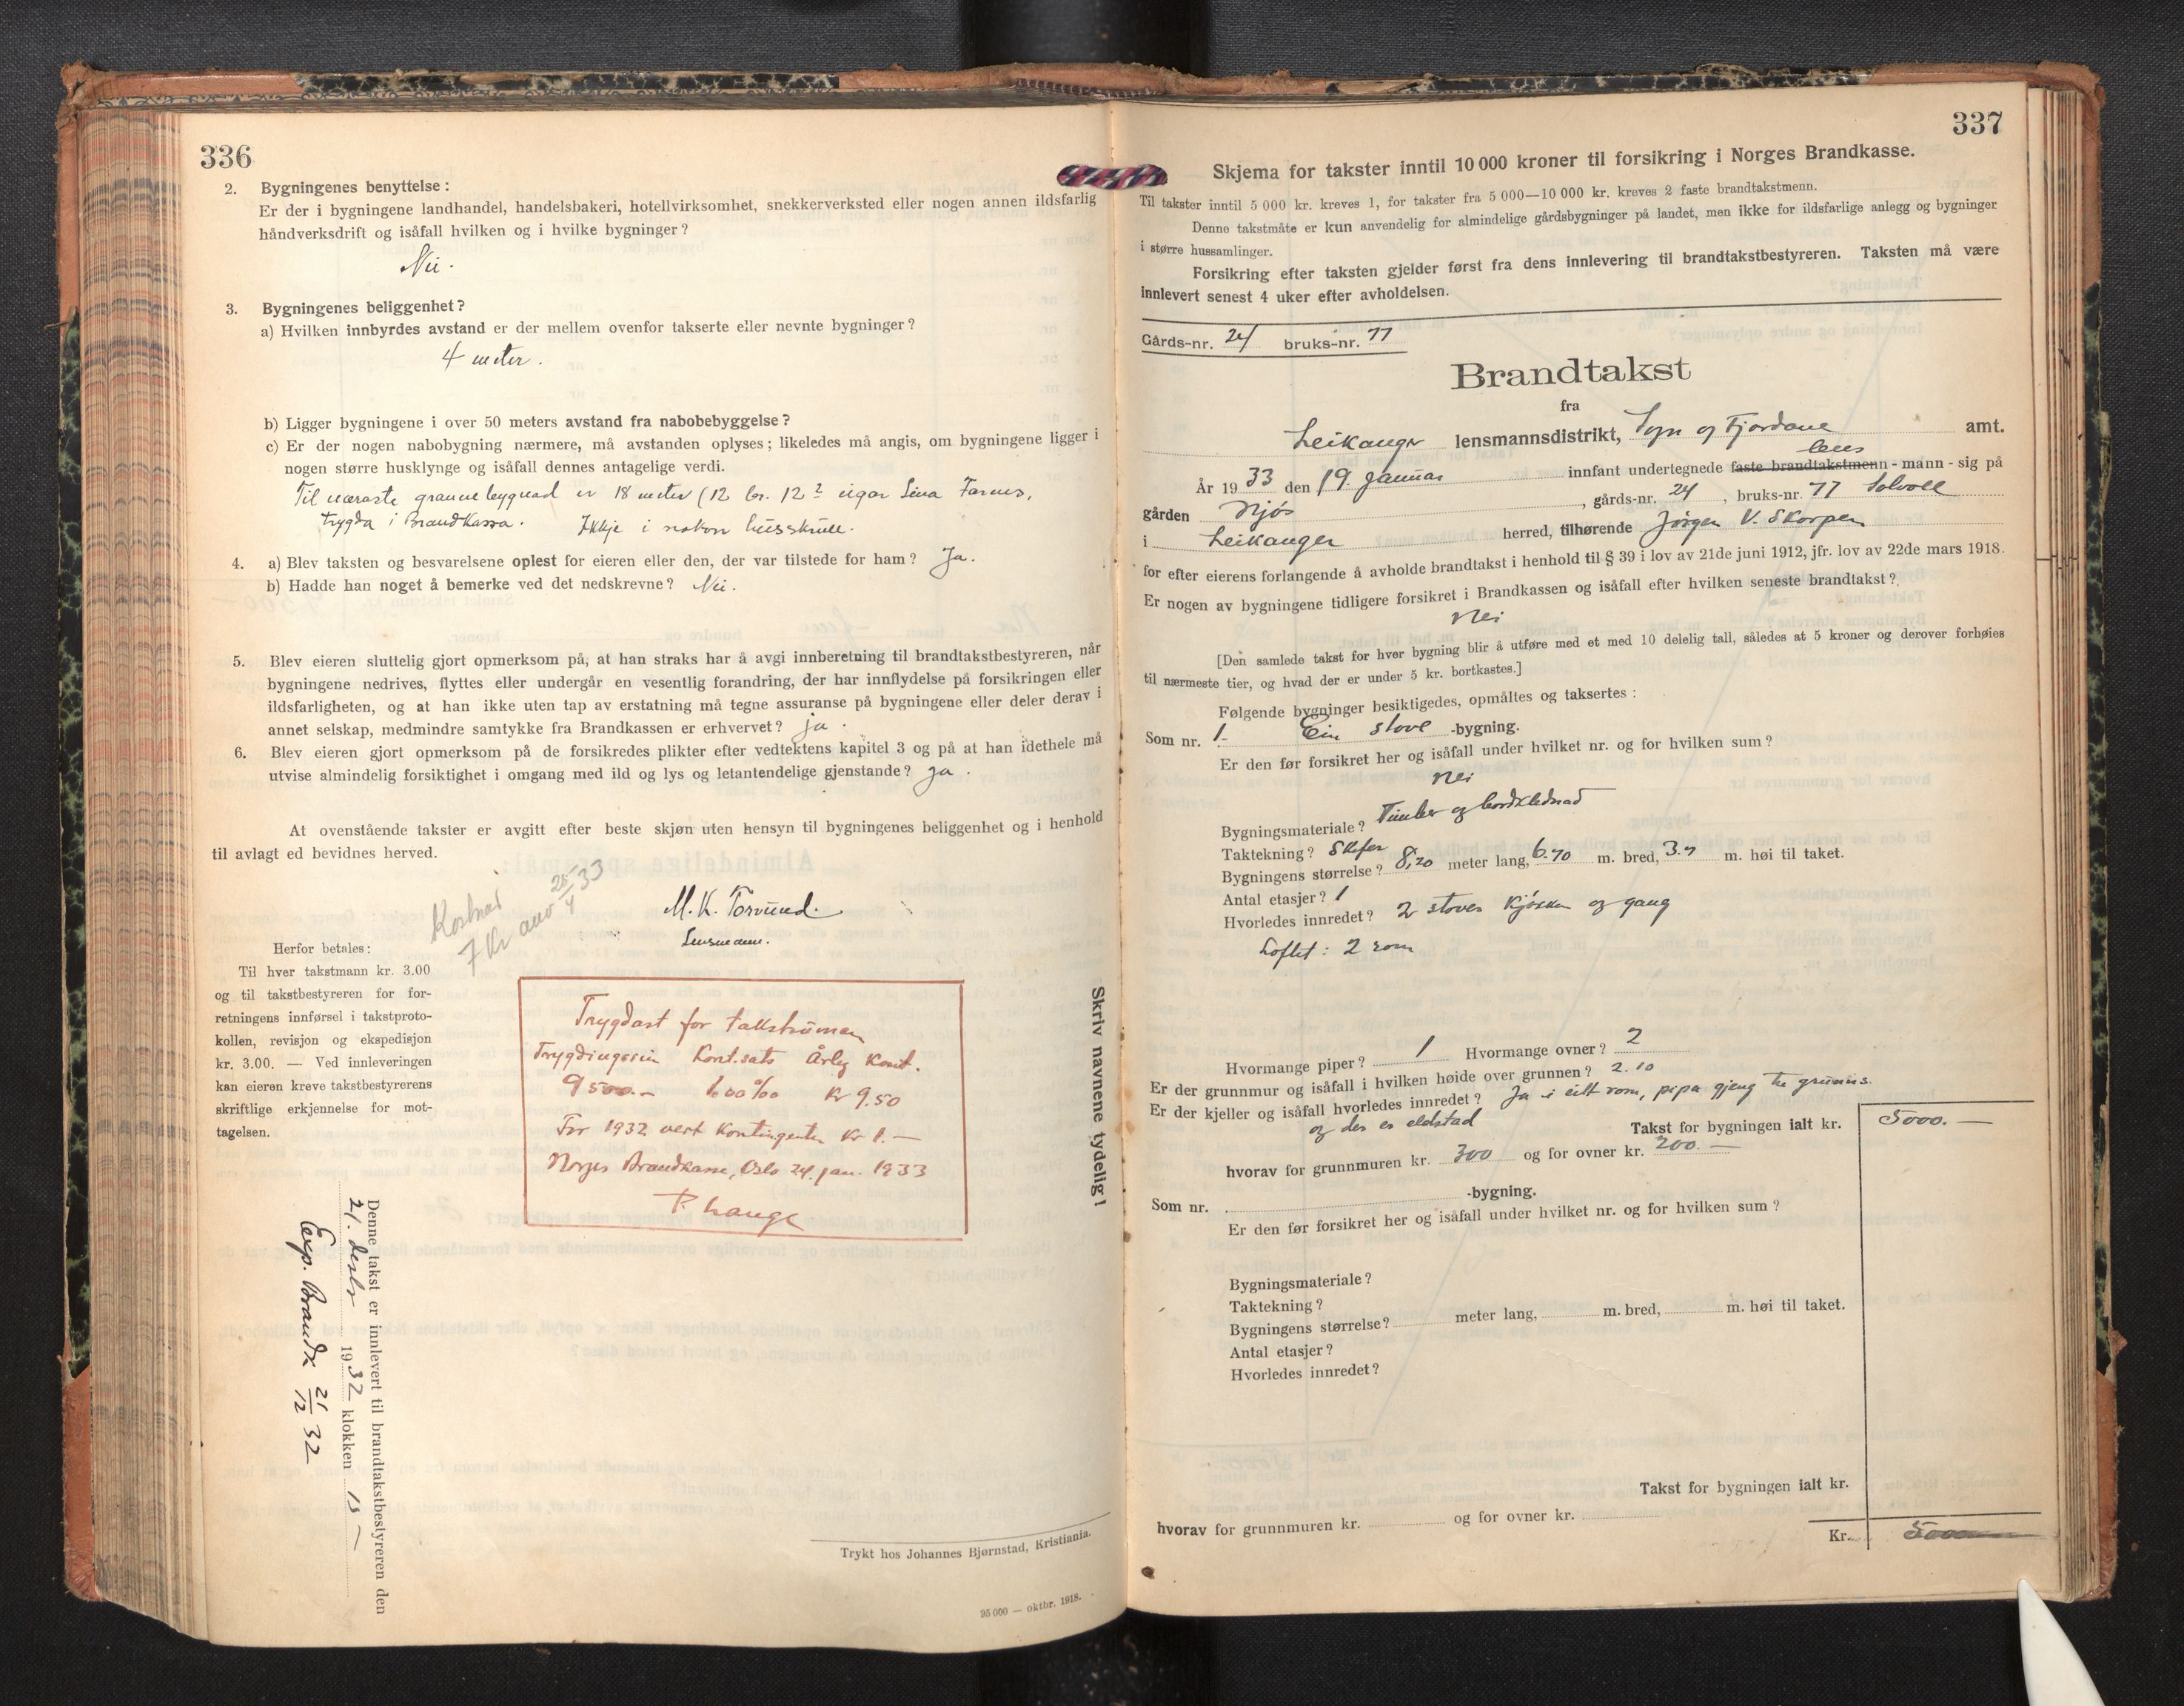 336
2. Bygningenes benyttelse:
Er der i bygningene landhandel, handelsbakeri, hotellvirksomhet, snekkerverksted eller nogen annen ildsfarlig
håndverksdrift og isåfall hvilken og i hvilke bygninger?
Nei.
3. Bygningenes beliggenhet?
a) Hvilken innbyrdes avstand er der mellem ovenfor takserte eller nevnte bygninger?
4 meter.
b) Ligger bygningene i over 50 meters avstand fra nabobebyggelse?
c) Er der nogen nabobygning nærmere, må avstanden oplyses; likeledes må angis, om bygningene ligger i
nogen større husklynge og isåfall dennes antagelige verdi.
Til næraste grannebygnad er 18 meter (12 br. 12? eigar Lina Farnes,
trygda i Brandkassa. Ikkje i nokon husskrull.
4. a) Blev taksten og besvarelsene oplest for eieren eller den, der var tilstede for ham? Ja.
b) Hadde han noget å bemerke ved det nedskrevne? Nei.
5. Blev eieren sluttelig gjort opmerksom på, at han straks har å avgi innberetning til brandtakstbestyreren, når
bygningene nedrives, flyttes eller undergår en vesentlig forandring, der har innflydelse på forsikringen eller
ildsfarligheten, og at han ikke uten tap av erstatning må tegne assuranse på bygningene eller deler derav i
annet selskap, medmindre samtykke fra Brandkassen er erhvervet? ja.
6. Blev eieren gjort opmerksom på de forsikredes plikter efter vedtektens kapitel 3 og på at han idethele må
utvise almindelig forsiktighet i omgang med ild og lys og letantendelige gjenstande? ja.
At ovenstående takster er avgitt efter beste skjøn uten hensyn til bygningenes beliggenhet og i henhold
til avlagt ed bevidnes herved.
Kostnad
7 Kr anv 25/4 33
M. K. Torvund.
Lensmann.
Herfor betales:
Til hver takstmann kr. 3.00
og til takstbestyreren for for-
retningens innførsel i takstproto-
kollen, revisjon og ekspedisjon
kr. 3.00. — Ved innleveringen
kan eieren kreve takstbestyrerens
skriftlige erkjennelse for mot-
tagelsen.
Trygdast for takstsumen
Trygdingssum Kont.sats Årleg Kont.
9500.— 1.00 ‰ Kr 9.50
For 1932 vert Kontingenten Kr 1.—
Norges Brandkasse, Oslo 24 jan. 1933
P. Lange
Denne takst er innlevert til brandtakstbestyreren den
21. desbr 1932 klokken 15 —
Exp. Brandk 21/12 32
Skriv navnene tydelig!
Trykt hos Johannes Bjørnstad, Kristiania.
25 000 — oktbr. 1918.
337
Skjema for takster inntil 10 000 kroner til forsikring i Norges Brandkasse.
Til takster inntil 5 000 kr. kreves 1, for takster fra 5 000—10 000 kr. kreves 2 faste brandtakstmenn.
Denne takstmåte er kun anvendelig for almindelige gårdsbygninger på landet, men ikke for ildsfarlige anlegg og bygninger
i større hussamlinger.
Forsikring efter taksten gjelder først fra dens innlevering til brandtakstbestyreren. Taksten må være
innlevert senest 4 uker efter avholdelsen.
Gårds-nr. 24 bruks-nr. 77
Brandtakst
fra
Leikanger lensmannsdistrikt, Sogn og Fjordane amt.
lens
År 1933 den 19. Januar innfant undertegnede faste brandtakstmenn - mann - sig på
gården Njøs, gårds-nr. 24, bruks-nr. 77 Solvoll
i Leikanger herred, tilhørende Jørgen V. Skorpen
for efter eierens forlangende å avholde brandtakst i henhold til § 39 i lov av 21de juni 1912, jfr. lov av 22de mars 1918.
Er nogen av bygningene tidligere forsikret i Brandkassen og isåfall efter hvilken seneste brandtakst?
Nei
[Den samlede takst for hver bygning blir å utføre med et med 10 delelig tall, således at 5 kroner og derover forhøies
til nærmeste tier, og hvad der er under 5 kr. bortkastes.]
Følgende bygninger besiktigedes, opmåltes og taksertes:
Som nr. 1. Ein stove -bygning.
Er den før forsikret her og isåfall under hvilket nr. og for hvilken sum?
Nei
Bygningsmateriale? Timber og bordklednad
Taktekning? Skifer
Bygningens størrelse? 8,20 meter lang, 6.70 m. bred, 3.7 m. høi til taket.
Antal etasjer? 1
Hvorledes innredet? 2 stover kjøken og gang
Loftet: 2 rom
Hvormange piper? 1 Hvormange ovner? 2
Er der grunnmur og isåfall i hvilken høide over grunnen? 2.10
Er der kjeller og isåfall hvorledes innredet? Ja i eitt rom, pipa gjeng til grunns.
og der er eldstad
Takst for bygningen ialt kr. 5000.—
hvorav for grunnmuren kr. 300 og for ovner kr. 200.—
Som nr. -bygning.
Er den før forsikret her og isåfall under hvilket nr. og for hvilken sum?
Bygningsmateriale?
Taktekning?
Bygningens størrelse? meter lang, m. bred, m. høi til taket.
Antal etasjer?
Hvorledes innredet?
Takst for bygningen ialt kr.
hvorav for grunnmuren kr. og for ovner kr.
Kr. 5000